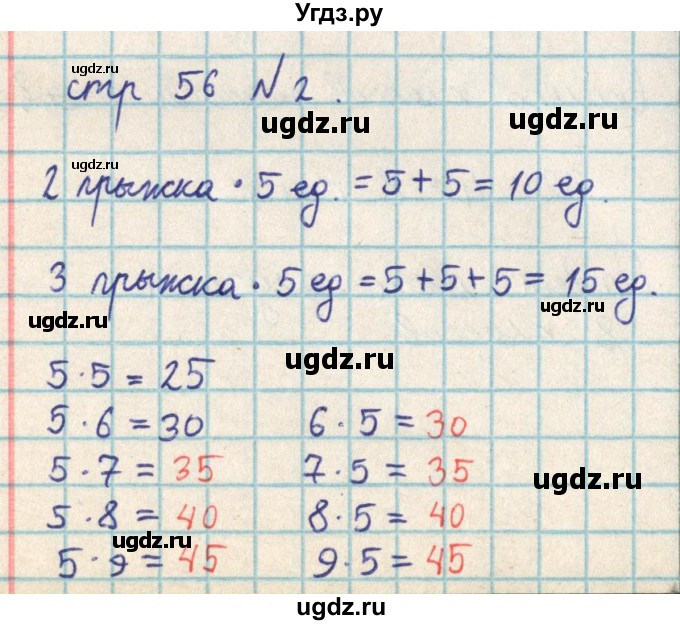 Угдз.ру
стр 56 №2.
2 прыжка · 5 ед. = 5 + 5 = 10 ед.
3 прыжка · 5 ед = 5 + 5 + 5 = 15 ед.
5 · 5 = 25
5 · 6 = 30 6 · 5 = 30
5 · 7 = 35 7 · 5 = 35
5 · 8 = 40 8 · 5 = 40
5 · 9 = 45 9 · 5 = 45
ugdz.ru
ugdz.ru
ugdz.ru
ugdz.ru
ugdz.ru
ugdz.ru
ugdz.ru
ugdz.ru
ugdz.ru
ugdz.ru